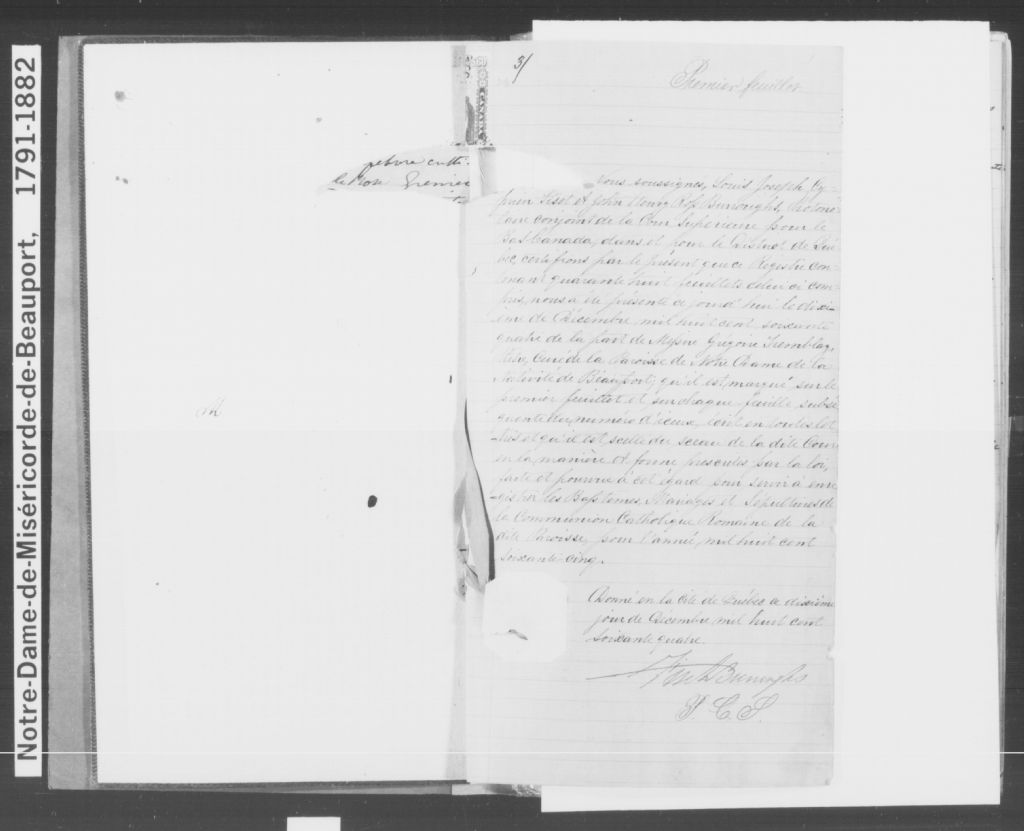 Notre-Dame-de-Miséricorde-de-Beauport, 1791-1882
3/
Premier feuillet
Grenier
Nous soussignés, Louis Joseph Cy-
prien Fiset et John Henry Ross Burroughs, Protono-
taire conjoint de la Cour Supérieure pour le
Bas Canada, dans et pour le District de Qué-
bec, certifions par le présent que ce Registre con-
tenant quarante huit feuillets celui ci com-
pris, nous a été présenté ce jourd'hui le dixi-
ème de Décembre mil huit cent soixante
quatre de la part de Messire Grégoire Tremblay,
Ptre, Curé de la Paroisse de Notre Dame de la
Nativité de Beauport; qu'il est marqué sur le
premier feuillet et sur chaque feuille subsé
quente du numéro d'iceux, écrit en toutes let
tres et qu'il est scellé du sceau de la dite Cour
en la manière et forme prescrites par la loi,
faite et pourvue à cet égard pour servir à enre
gistrer les Baptemes, Mariages et Sépultures de
la Communion Catholique Romaine de la
dite Paroisse, pour l'année mil huit cent
soixante cinq.
Donné en la Cité de Québec ce dixième
jour de Décembre mil huit cent
soixante quatre.
Fiset & Burroughs
P. C. S.